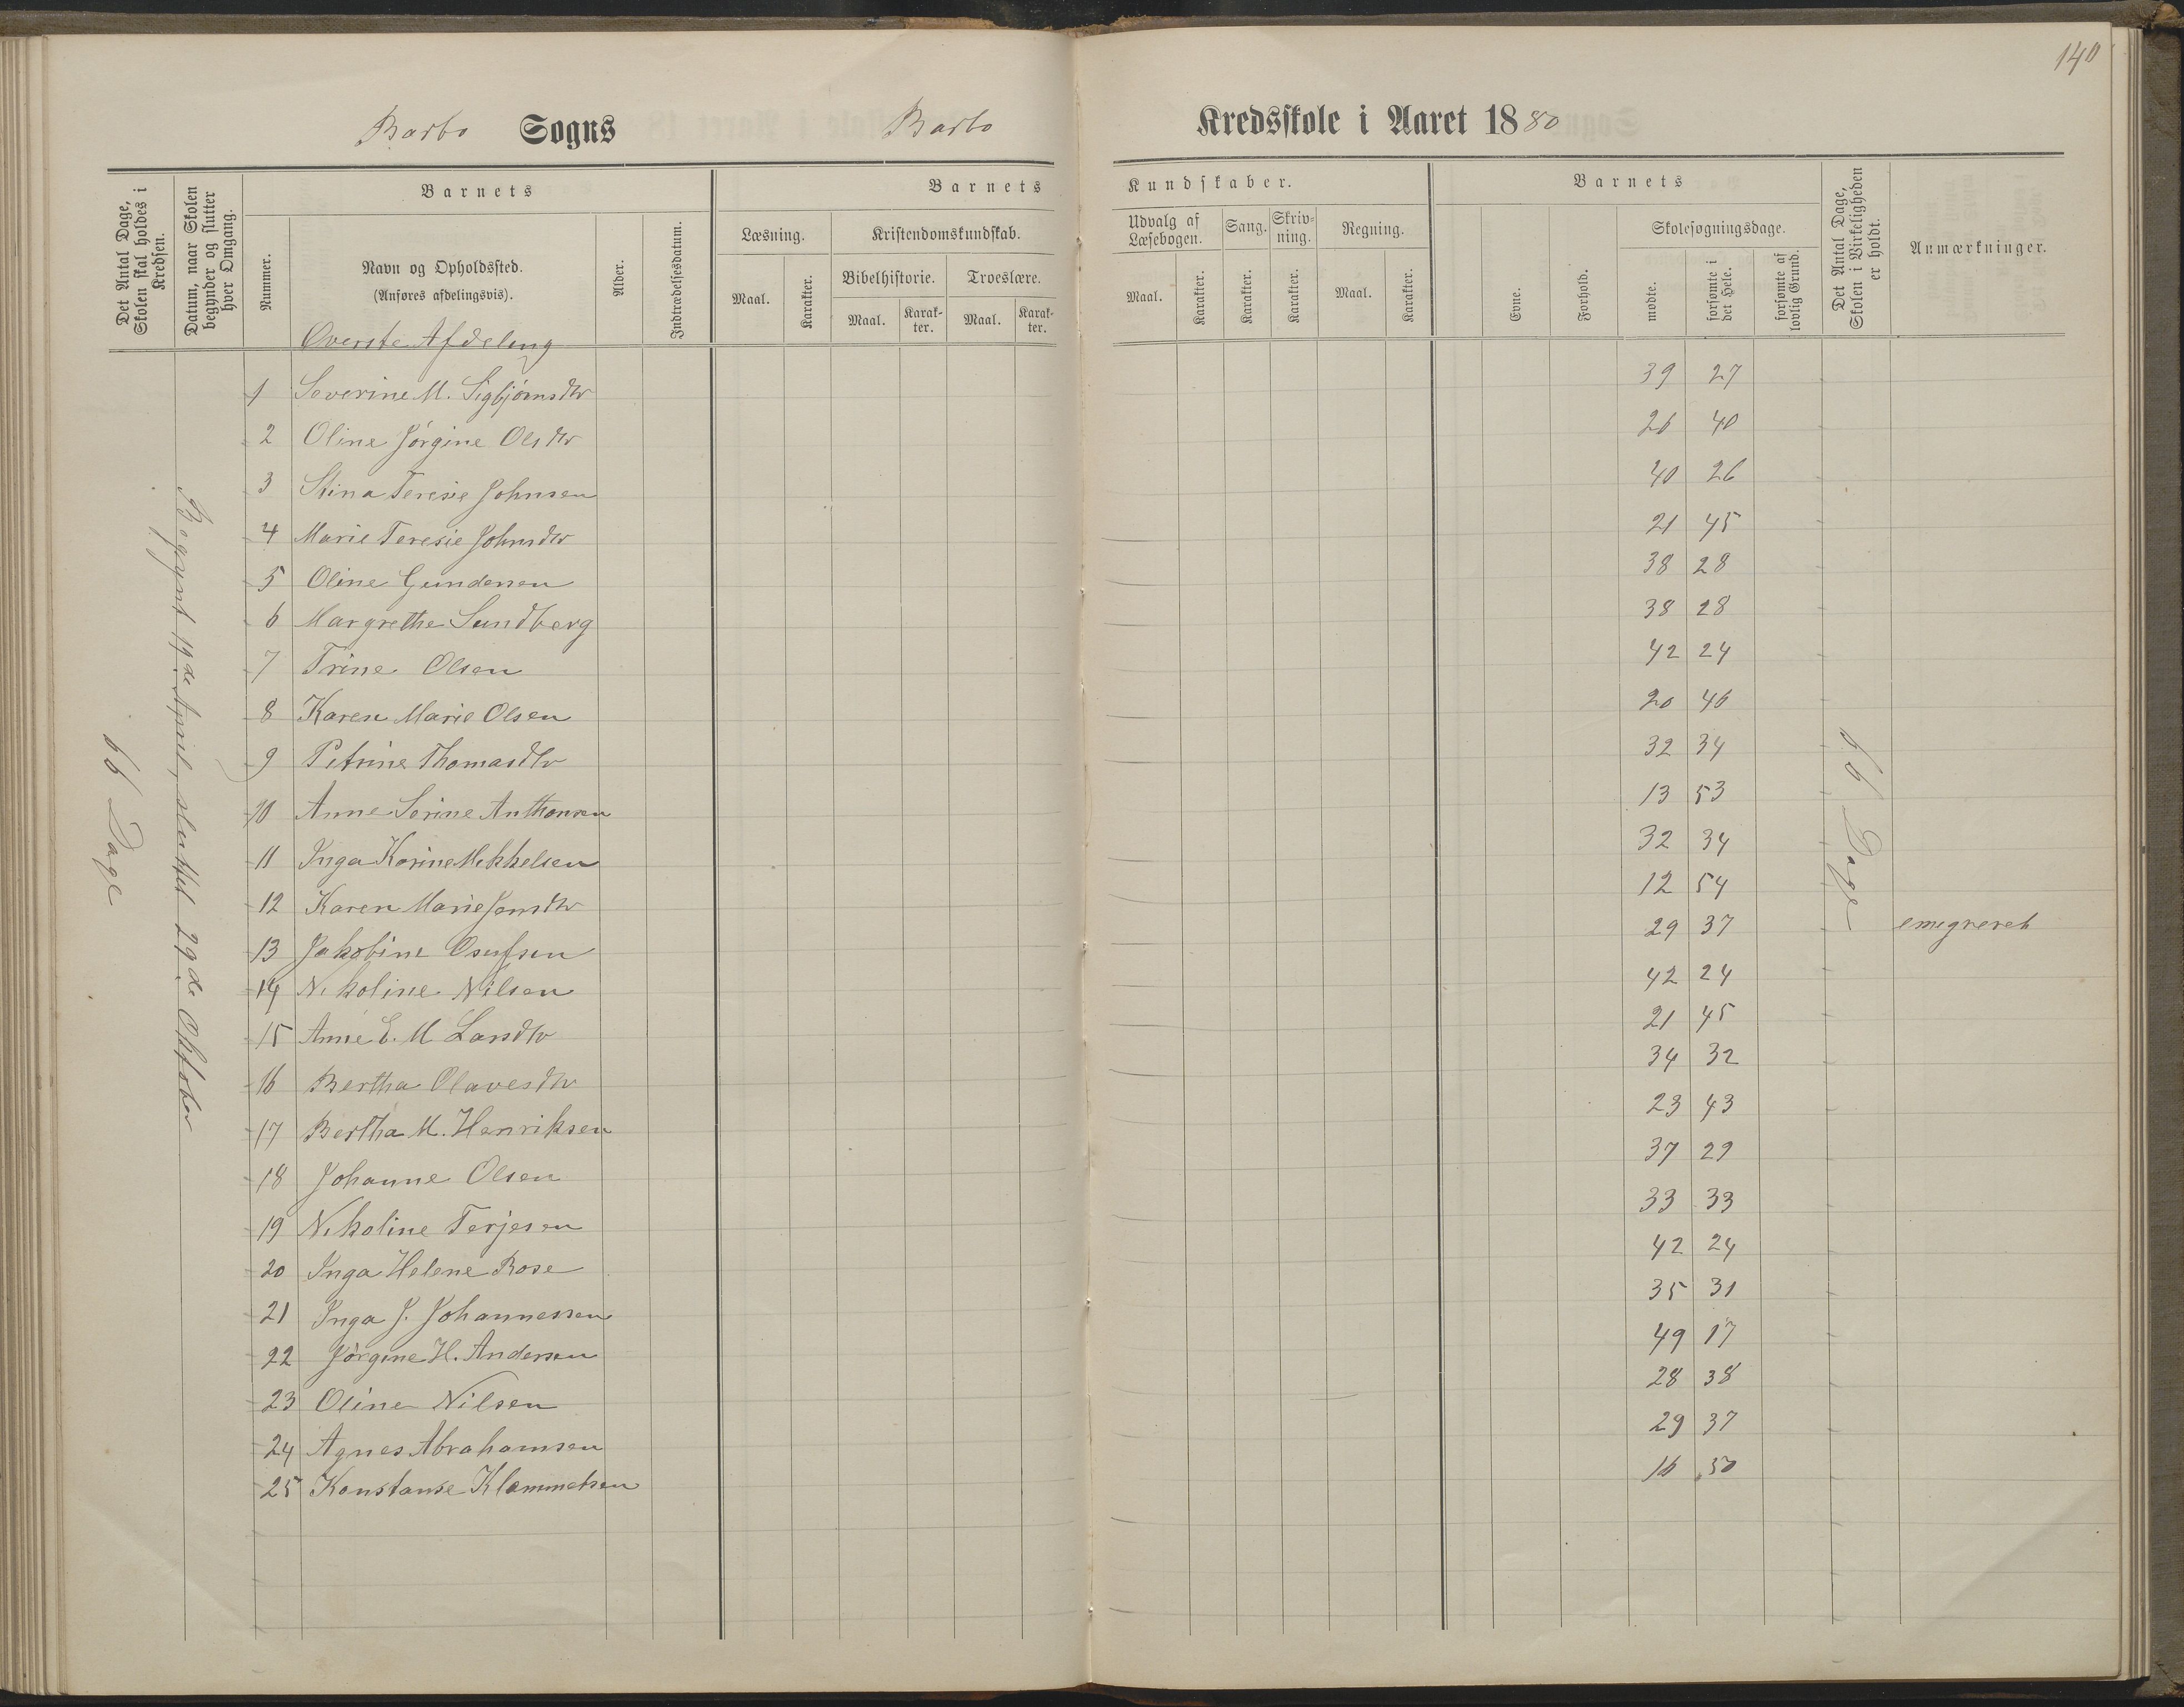 140
Barbo Sogns Barbo Kredsskole i Aaret 1880
Det Antal Dage, Skolen skal holdes i Kredsen.
Datum, naar Skolen begynder og slutter hver Omgang.
Barnets
Nummer.
Navn og Opholdssted.
(Anføres afdelingsvis).
Alder.
Indtrædelsesdatum.
Barnets Kundskaber.
Læsning.
Maal. Karakter.
Kristendomskundskab.
Bibelhistorie. Troeslære.
Maal. Karak-ter. Maal. Karak-ter.
Udvalg af Læsebogen. Sang. Skriv-ning. Regning.
Maal. Karakter. Karakter. Karakter. Maal. Karakter.
Barnets
Evne. Forhold.
Skolesøgningsdage.
mødte. forsømte i det Hele. forsømte af lovlig Grund.
Det Antal Dage, Skolen i Virkeligheden er holdt.
Anmærkninger.
66 Dage
Begynt 19de April, sluttet 29de Oktober
Øverste Afdeling
1 Severine M. Sigbjørnsdtr 39 27
2 Oline Jørgine Olsdtr 26 40
3 Stina Teresie Johnsen 40 26
4 Marie Teresie Johnsdtr 21 45
5 Oline Gundersen 38 28
6 Margrethe Sundberg 38 28
7 Trine Olsen 42 24
8 Karen Marie Olsen 20 46
9 Petrine Thomasdtr 32 34
10 Anne Serine Anthonsen 13 53
11 Inga Karine Mikkelsen 32 34
12 Karen Marie Jensdtr 12 54
13 Jakobine Osufsen 29 37 emigreret
14 Nikoline Nilsen 42 24
15 Anne E. M Larsdtr 21 45
16 Bertha Olavesdtr 34 32
17 Bertha M. Henriksen 23 43
18 Johanne Olsen 37 29
19 Nikoline Terjesen 33 33
20 Inga Helene Rose 42 24
21 Inga J. Johannessen 35 31
22 Jørgine H. Andersen 49 17
23 Oline Nilsen 28 38
24 Agnes Abrahamsen 29 37
25 Konstanse Klemmetsen 16 50
66 Dage